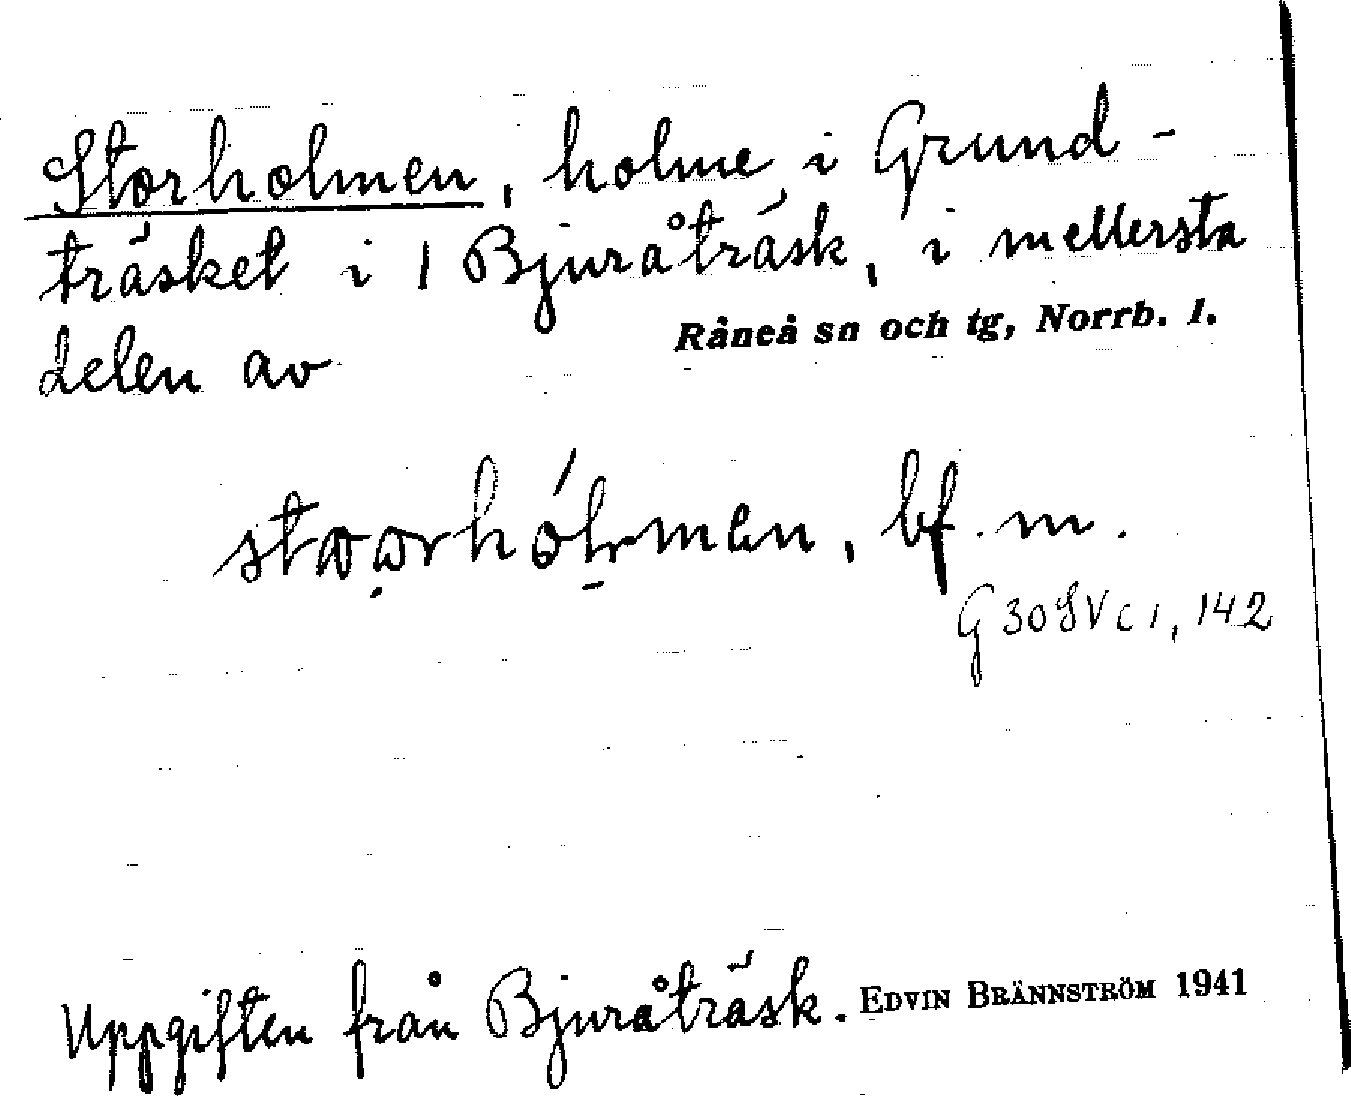 Storholmen, holme i Grund-
träsket i 1 Bjuråträsk, i mellersta
delen av Råneå sn och tg, Norrb. l.
bf. m.
G 30 S V c 1, 142
Uppgiften från Bjuråträsk. EDVIN BRÄNNSTRÖM 1941